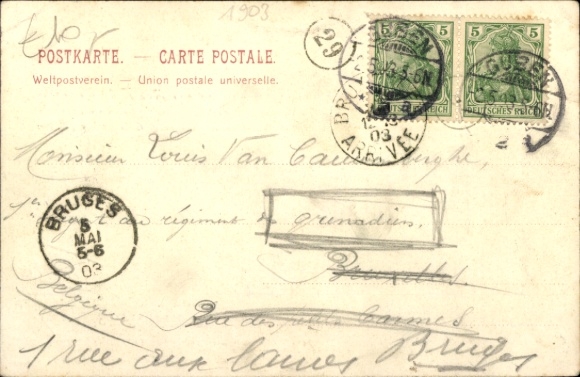 1903
POSTKARTE. — CARTE POSTALE.
Weltpostverein. — Union postale universelle.
29
5 5
5 5
DEUTSCHES REICH
DEUTSCHES REICH
GUBEN
GUBEN
03
ARRIVÉE
Monsieur Louis Van
au régiment des grenadiers.
BRUGES
5
MAI
5-6
03
Bruxelles.
Belgique
Rue des petits Carmes
1 rue aux laines Bruges